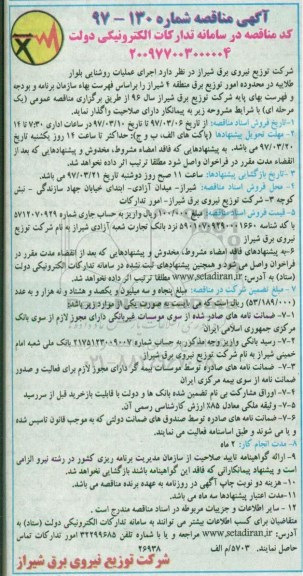 آگهی مناقصه شماره ۱۳۰ - ۹۷
کد مناقصه در سامانه تدارکات الکترونیکی دولت
۲۰۰۹۷۷۰۰۳۰۰۰۰۰۴
شرکت توزیع نیروی برق شیراز در نظر دارد اجرای عملیات روشنایی بلوار
طلاییه در محدوده امور توزیع برق منطقه ۴ شیراز را براساس فهرست بهاء سازمان برنامه و بودجه
و فهرست بهای پایه شرکت توزیع برق شیراز سال ۹۶ از طریق برگزاری مناقصه عمومی (یک
مرحله ای) با شرایط مشروحه زیر به پیمانکار دارای صلاحیت واگذار نماید.
۱-تاریخ فروش اسناد مناقصه: از تاریخ ۹۷/۰۳/۰۶ تا تاریخ ۹۷/۰۳/۱۰ در ساعات اداری ۷:۳۰ تا ۱۴
۲- مهلت تحویل پیشنهادها (پاکت های الف، ب و ج): حداکثر تا ساعت ۱۴ روز یکشنبه تاریخ
۹۷/۰۳/۲۰ می باشد. به پیشنهادهایی که فاقد امضاء مشروط، مخدوش و پیشنهادهایی که بعد از
انقضاء مدت مقرر در فراخوان واصل شود مطلقا ترتیب اثر داده نخواهد شد.
۳- تاریخ بازگشایی پیشنهادها: ساعت ۱۱ صبح روز دوشنبه تاریخ ۹۷/۰۳/۲۱ می باشد.
۴- محل فروش اسناد مناقصه: شیراز- میدان آزادی- ابتدای خیابان جهاد سازندگی - نبش
کوچه ۳- شرکت توزیع نیروی برق شیراز- امور تدارکات
۵- قیمت فروش اسناد مناقصه: مبلغ ۱۰۰/۰۰۰ ریال واریز به حساب جاری شماره ۵۷۱۲۰۷۰۹۲۹
با کد شناسه ۵۹۰۱۰۷۰۹۲۹۰۰۰۱۶۶۰ نزد بانک تجارت شعبه آزادی شیراز به نام شرکت توزیع
نیروی برق شیراز
۶-به پیشنهادهای فاقد امضاء مشروط، مخدوش و پیشنهادهایی که بعد از انقضاء مدت مقرر در
فراخوان واصل می شود و همچنین پیشنهادهای ثبت نشده در سامانه تدارکات الکترونیکی دولت
(ستاد) به آدرس: www.setadiran.ir مطلقا ترتیب اثر داده نخواهد شد.
۷-مبلغ تضمین شرکت در مناقصه: مبلغ پنجاه و سه میلیون و یکصد و هشتاد و نه هزار و به عدد
(۵۳/۱۸۹/۰۰۰) ریال است که می بایست به صورت یکی از موارد زیر باشد:
۷-۱- ضمانت نامه های صادر شده از سوی موسسات غیربانکی دارای مجوز لازم از سوی بانک
مرکزی جمهوری اسلامی ایران
۷-۲- رسید بانکی واریز وجه مذکور به حساب شماره ۲۱۷۵۱۲۳۰۰۹۰۰۷ بانک ملی شعبه امام
خمینی شیراز به نام شرکت توزیع نیروی برق شیراز
۷-۳- ضمانت نامه های صادره توسط موسسات بیمه گر دارای مجوز لازم برای فعالیت و صدور
ضمانت نامه از سوی بیمه مرکزی ایران
۷-۴- اوراق مشارکت بی نام تضمین شده بانک ها و دولت با قابلیت بازخرید قبل از سررسید
۷-۵- وثیقه ملکی معادل ۸۵٪ ارزش کارشناسی رسمی آن.
۷-۶- ضمانت نامه های صادره توسط صندوق های ضمانت دولتی که به موجب قانون تاسیس شده
و یا می شوند و طبق اساسنامه فعالیت می نمایند.
۸-مدت انجام کار: ۲ ماه
۹- ارائه گواهینامه تایید صلاحیت از سازمان مدیریت برنامه ریزی کشور در رشته نیرو الزامی
است و پیشنهاد پیمانکارانی که فاقد این گواهینامه باشند بازگشایی نخواهد شد.
۱۰- هزینه دو نوبت چاپ آگهی در روزنامه به عهده برنده مناقصه می باشد.
۱۱-مدت اعتبار پیشنهادها سه ماه می باشد.
۱۲- سایر اطلاعات و جزییات مربوطه در اسناد مناقصه مندرج است.
متقاضیان برای کسب اطلاعات بیشتر می توانند به سامانه تدارکات الکترونیکی دولت (ستاد) به
آدرس: www.setadiran.ir مراجعه و یا با شماره تلفن ۳۲۲۹۹۶۸۵ امور تدارکات این شرکت تماس
حاصل نمایند. ۵۷۰۳/م الف ۲۶۹۳۸
شرکت توزیع نیروی برق شیراز